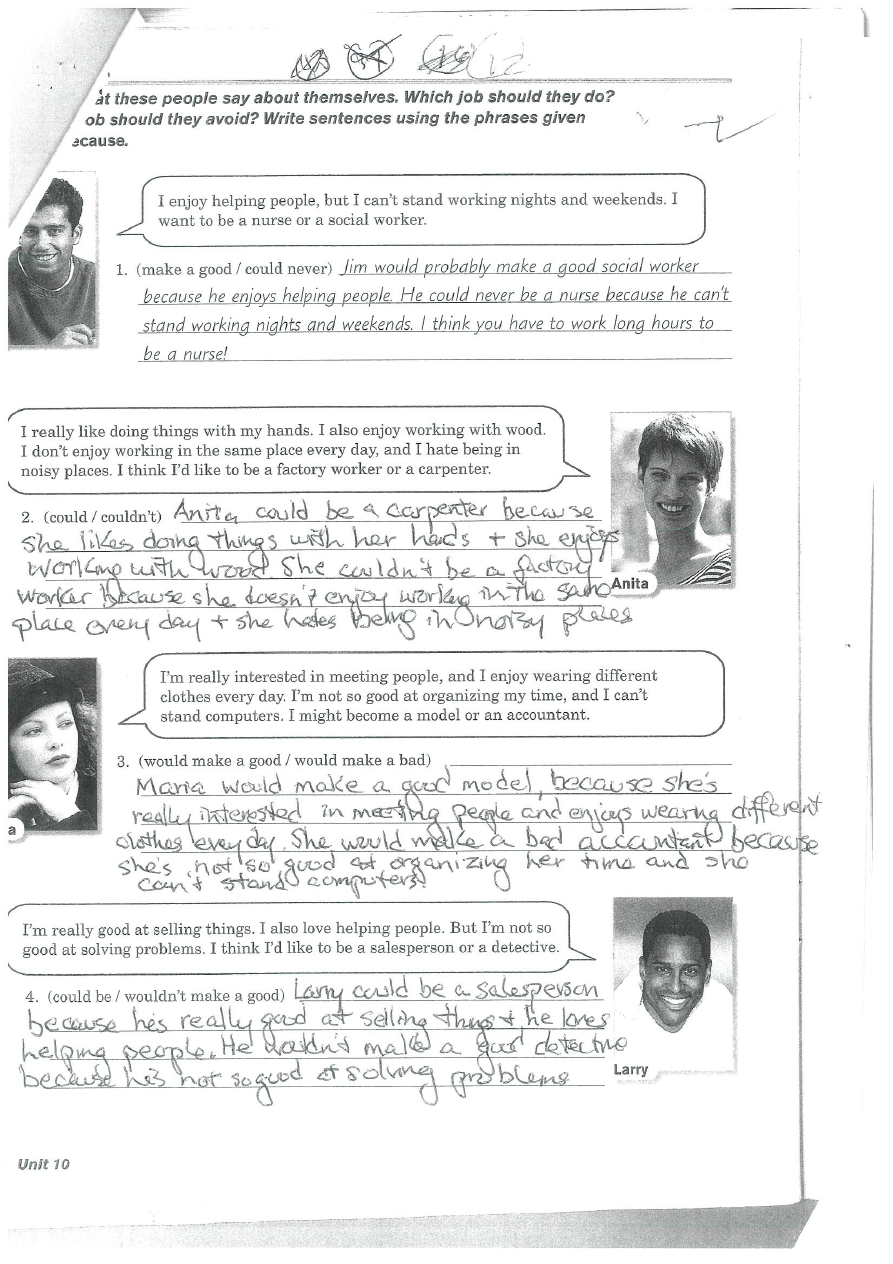 12
at these people say about themselves. Which job should they do?
ob should they avoid? Write sentences using the phrases given
ecause.
I enjoy helping people, but I can't stand working nights and weekends. I
want to be a nurse or a social worker.
1. (make a good / could never) Jim would probably make a good social worker
because he enjoys helping people. He could never be a nurse because he can't
stand working nights and weekends. I think you have to work long hours to
be a nurse!
I really like doing things with my hands. I also enjoy working with wood.
I don't enjoy working in the same place every day, and I hate being in
noisy places. I think I'd like to be a factory worker or a carpenter.
2. (could / couldn't) Anita could be a carpenter because
she likes doing things with her hads + she enjoys
working with wood She couldn't be a factory
worker because she doesn't enjoy working in the same
Anita
place every day + she hates being in noisy places
I'm really interested in meeting people, and I enjoy wearing different
clothes every day. I'm not so good at organizing my time, and I can't
stand computers. I might become a model or an accountant.
3. (would make a good / would make a bad)
Maria would make a good model, because she's
really interested in meeting people and enjoys wearing different
a
clothes every day. She would make a bad accountant because
she's not so good at organizing her time and she
can't stand computers.
I'm really good at selling things. I also love helping people. But I'm not so
good at solving problems. I think I'd like to be a salesperson or a detective.
4. (could be / wouldn't make a good) Larry could be a salesperson
because he's really good at selling things + he loves
helping people. He wouldn't make a good detective
because he's not so good at solving problems
Larry
Unit 10